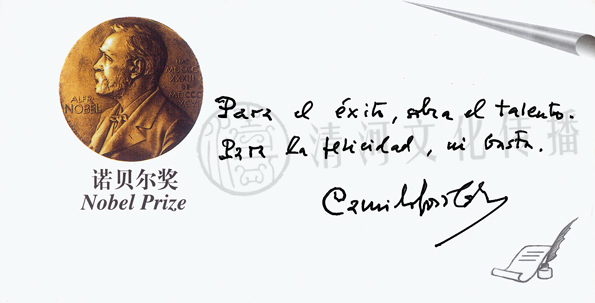 ALFR·
NOBEL
诺贝尔奖
Nobel Prize
Para el éxito, sobra el talento.
Para la felicidad, ni basta.
Camilo José Cela
清河文化传播